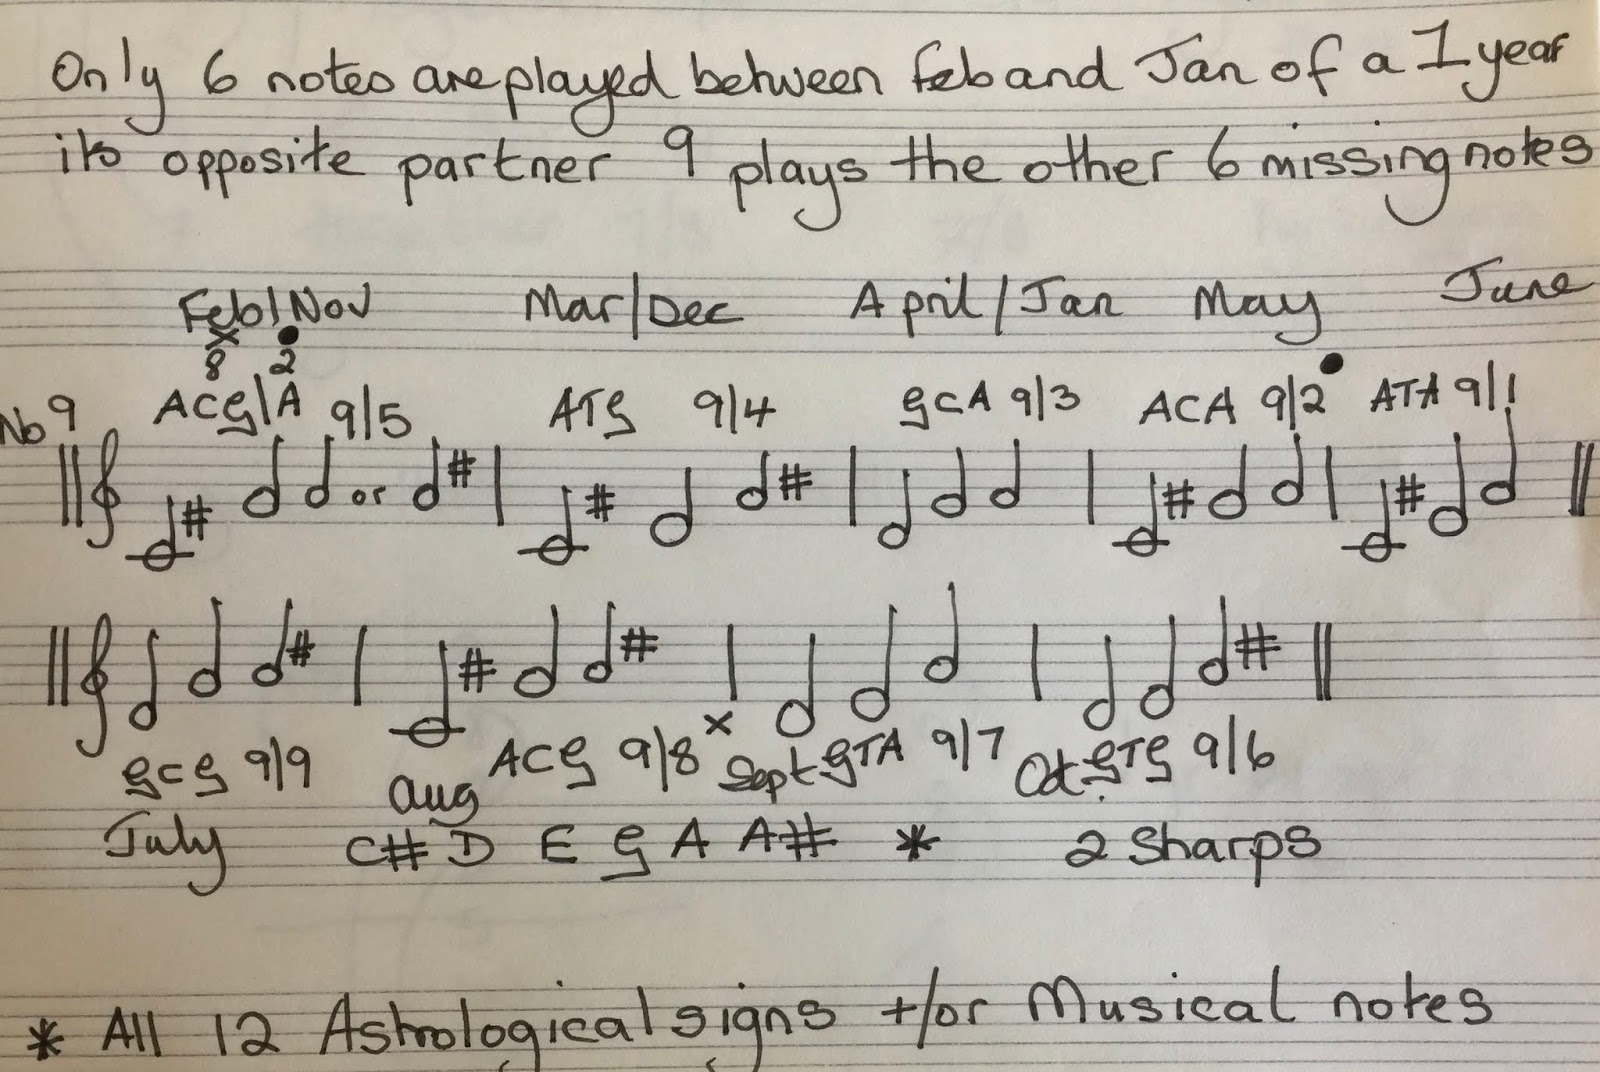 Only 6 notes are played between Feb and Jan of a 1 year
its opposite partner 9 plays the other 6 missing notes
Feb/Nov Mar/Dec April/Jan May June
x ●
8 2 ●
No 9 ACG/A 9/5 ATG 9/4 GCA 9/3 ACA 9/2 ATA 9/1
# or # # # # #
# # # #
x
GCG 9/9 ACG 9/8 Sept GTA 9/7 Oct. GTG 9/6
July aug
C# D E G A A# * 2 Sharps
* All 12 Astrological signs +/or Musical notes